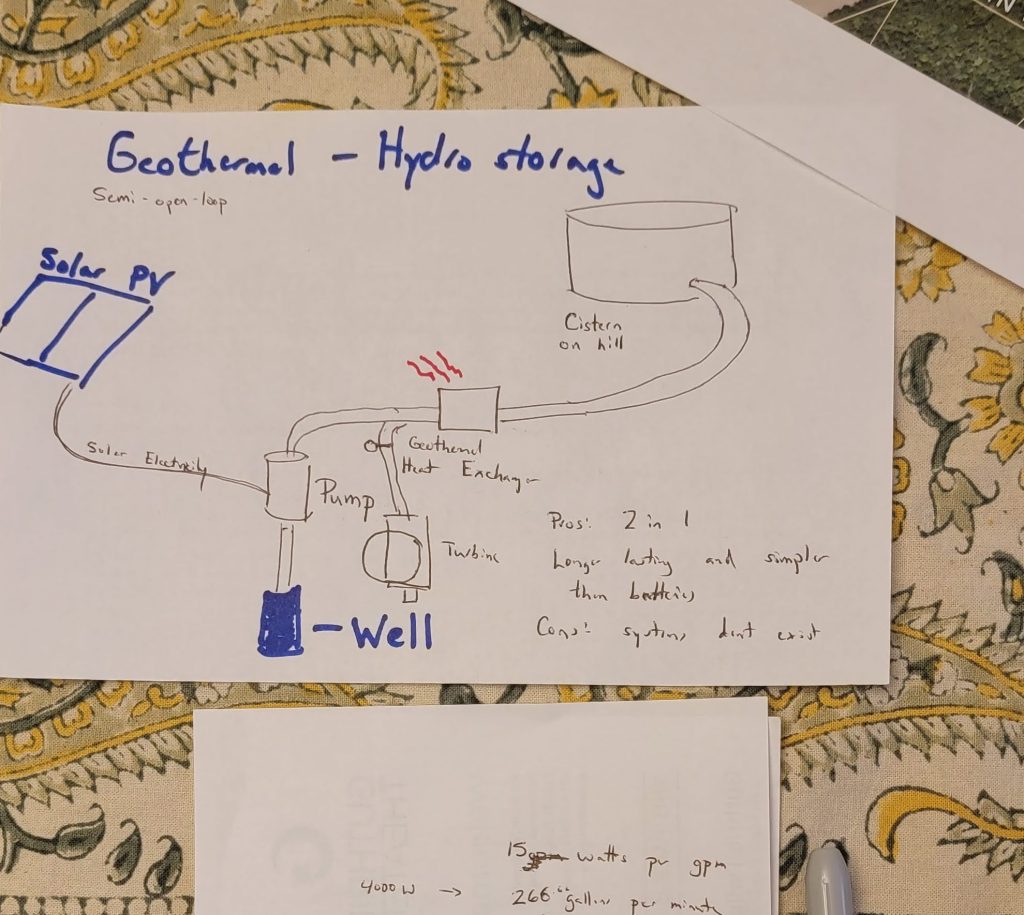 Geothermal - Hydro storage
Semi-open-loop
Solar PV
Cistern
on hill
Geothermal
Heat Exchanger
Solar Electricity
Pump
Turbine
Pros: 2 in 1
Longer lasting and simpler
than batteries
Cons: systems dont exist
- Well
15 watts per gpm
4000 W → 266 gallons per minute